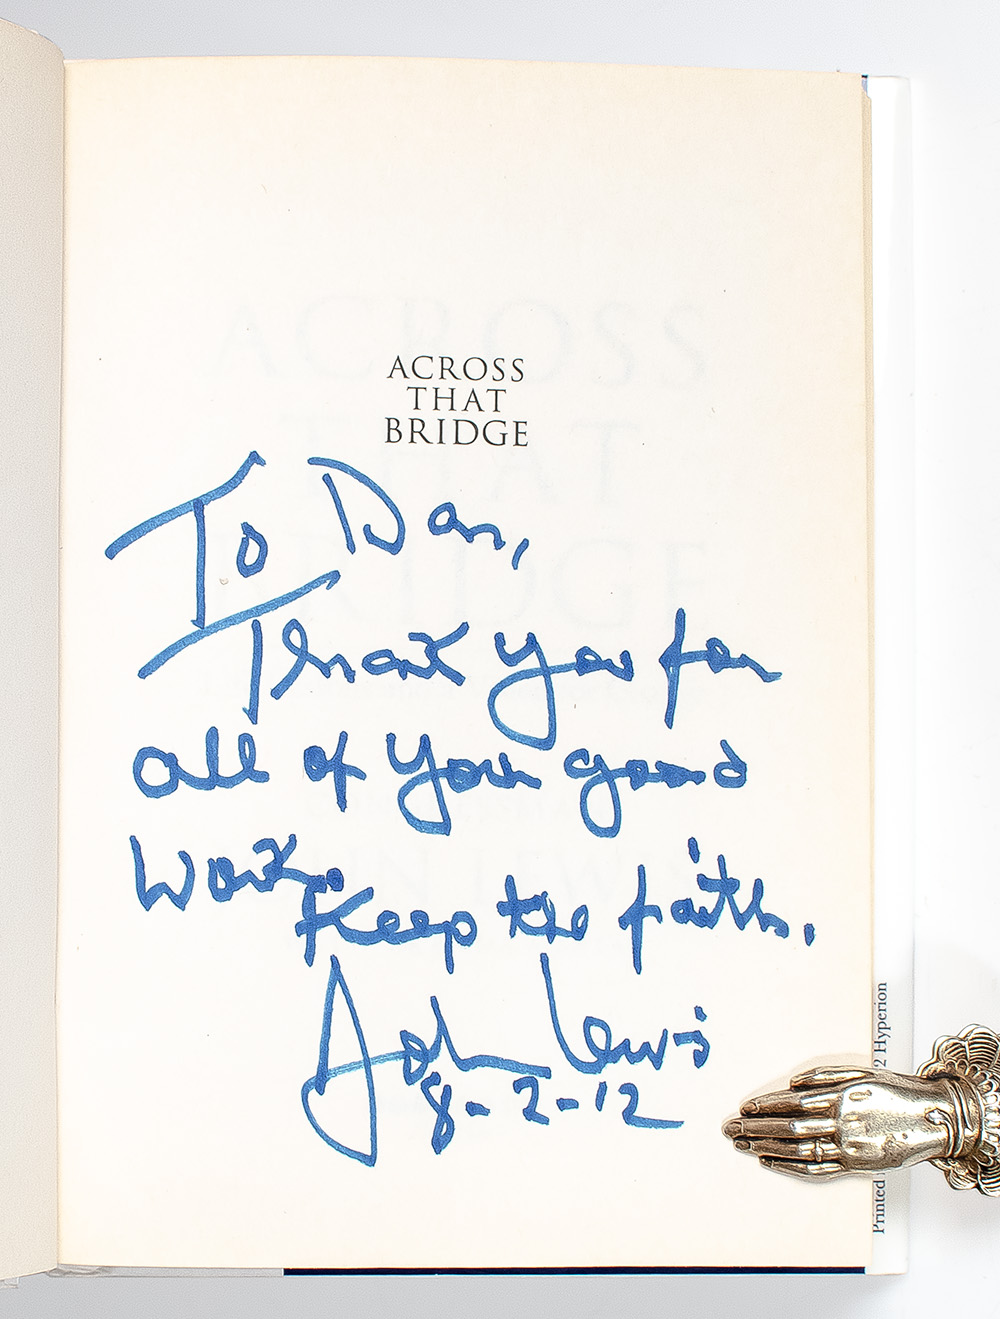 ACROSS
THAT
BRIDGE
To Dan,
Thank you for
all of your good
work.
Keep the faith.
John Lewis
8-2-12
2 Hyperion
Printed